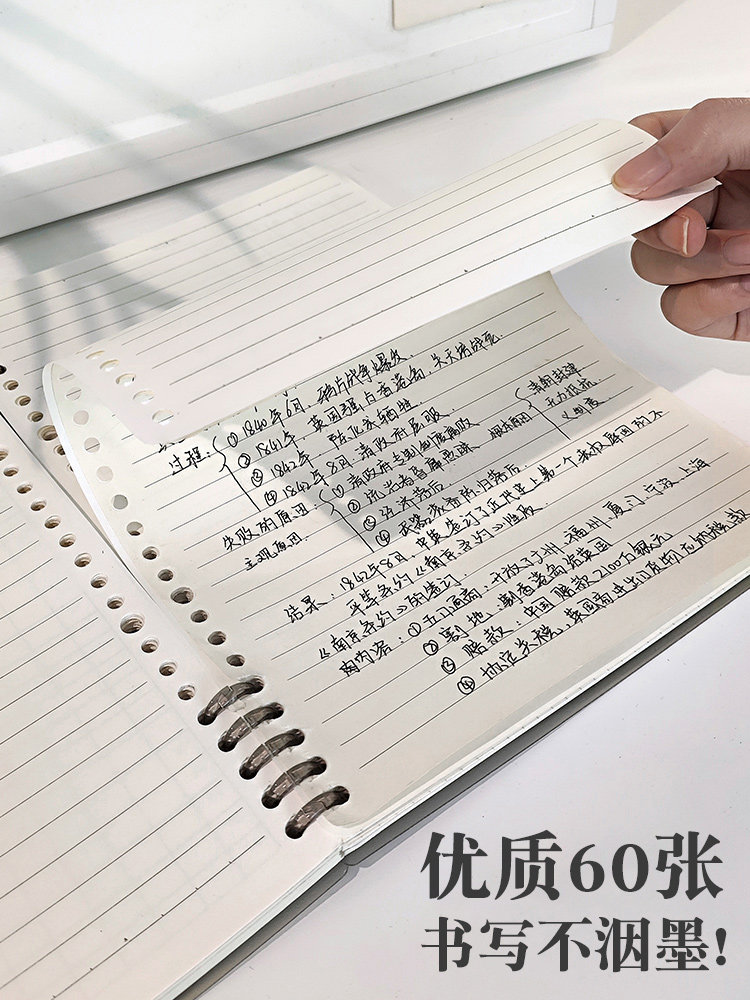 ① 1840年6月,鸦片战争爆发.
过程: ② 1841年,英国强占香港岛,关天培战死
③ 1842年,陈化成牺牲
④ 1842年8月,清政府战败
失败的原因: ① 清政府专制制度腐败
主观原因 ② 统治者昏庸
③ 经济落后
④ 武器装备陈旧落后
根本原因
无力抵抗
结果: 1842年8月,中英签订了近代史上第一个丧权辱国的不
平等条约《南京条约》
《南京条约》的签订
内容: ① 五口通商:开放了广州、福州、厦门、宁波、上海
② 割地:割香港岛给英国
③ 赔款:中国赔款2100万银元
④ 协定关税,英国商人进出口货物交纳的税款
优质60张
书写不洇墨!